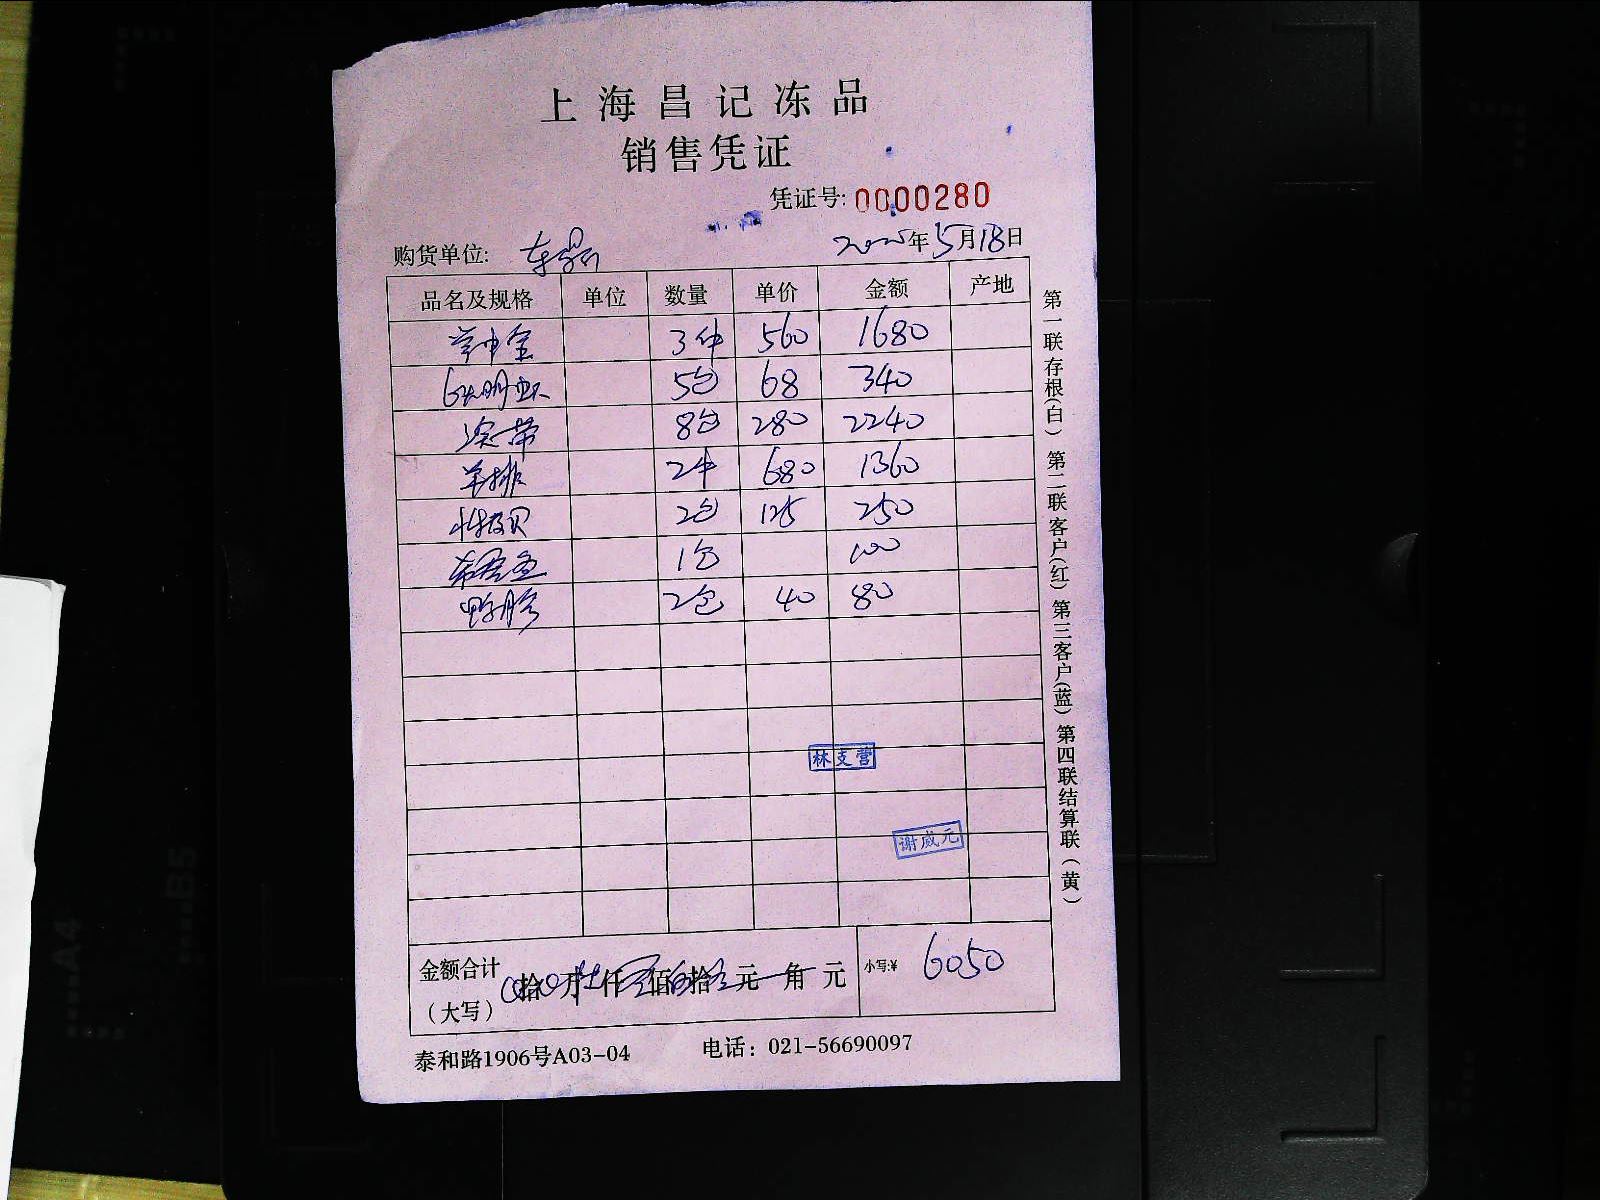 上海昌记冻品
销售凭证
凭证号: 0000280
购货单位: 2025年5月18日
品名及规格 单位 数量 单价 金额 产地
3件 560 1680
5包 68 340
8包 280 2240
羊排 2件 680 1360
2包 125 250
1包 100
鸭胗 2包 40 80
林支营
谢威元
金额合计（大写） 拾 万 仟 佰 拾 元 角 元 小写:¥ 6050
泰和路1906号A03-04 电话：021-56690097
第一联存根(白) 第二联客户(红) 第三客户(蓝) 第四联结算联(黄)
A4
B5